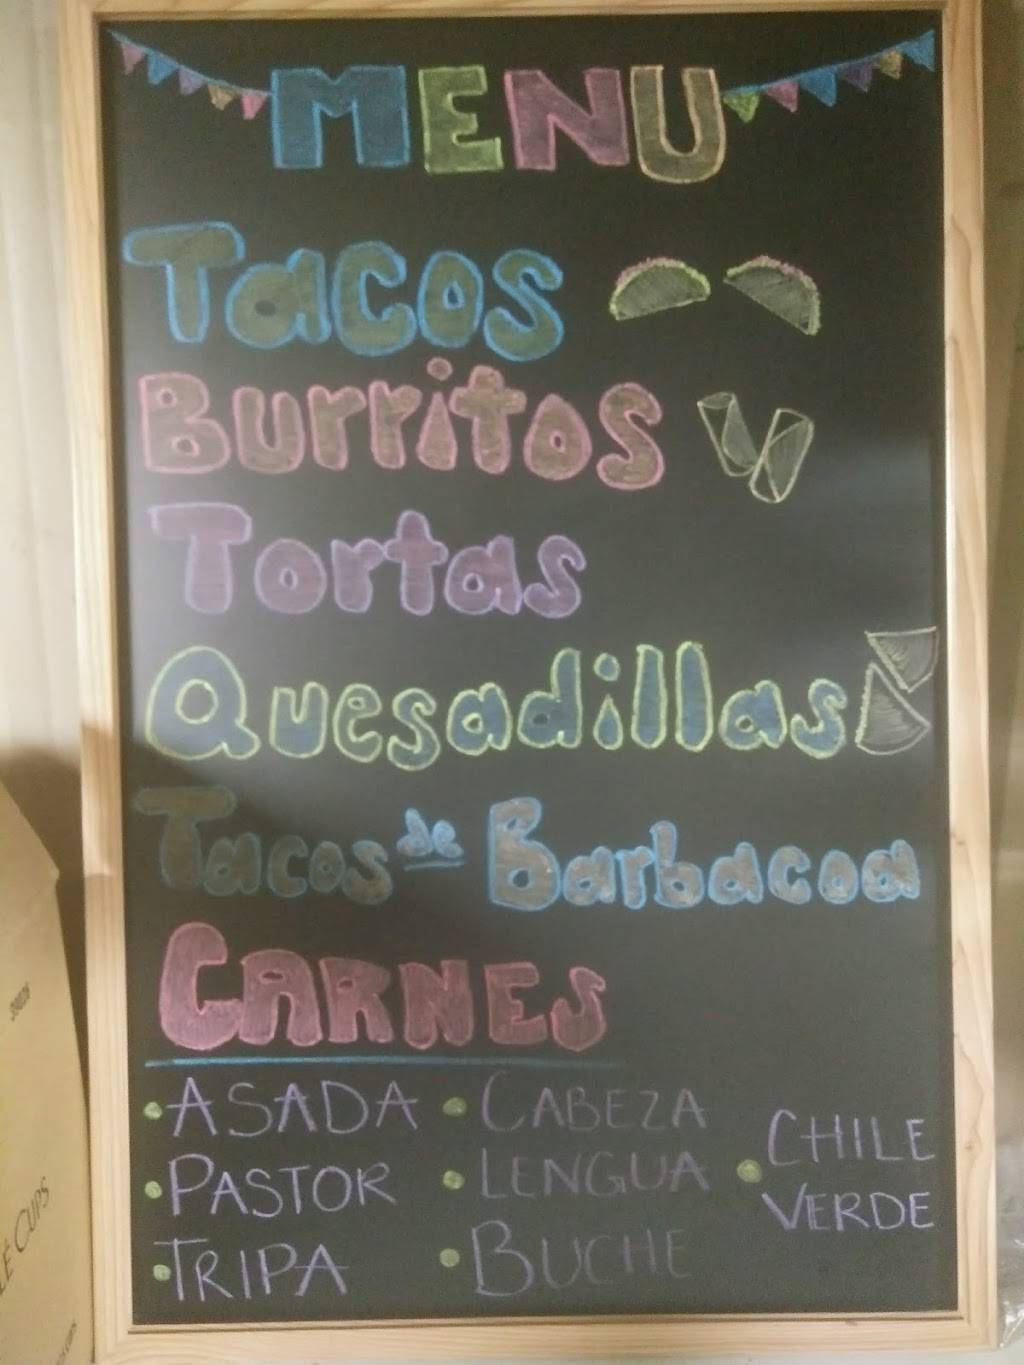 MENU
Tacos
Burritos
Tortas
Quesadillas
Tacos de Barbacoa
CARNES
• ASADA
• PASTOR
• TRIPA
• CABEZA
• LENGUA
• BUCHE
• CHILE
VERDE
LÉ CUPS